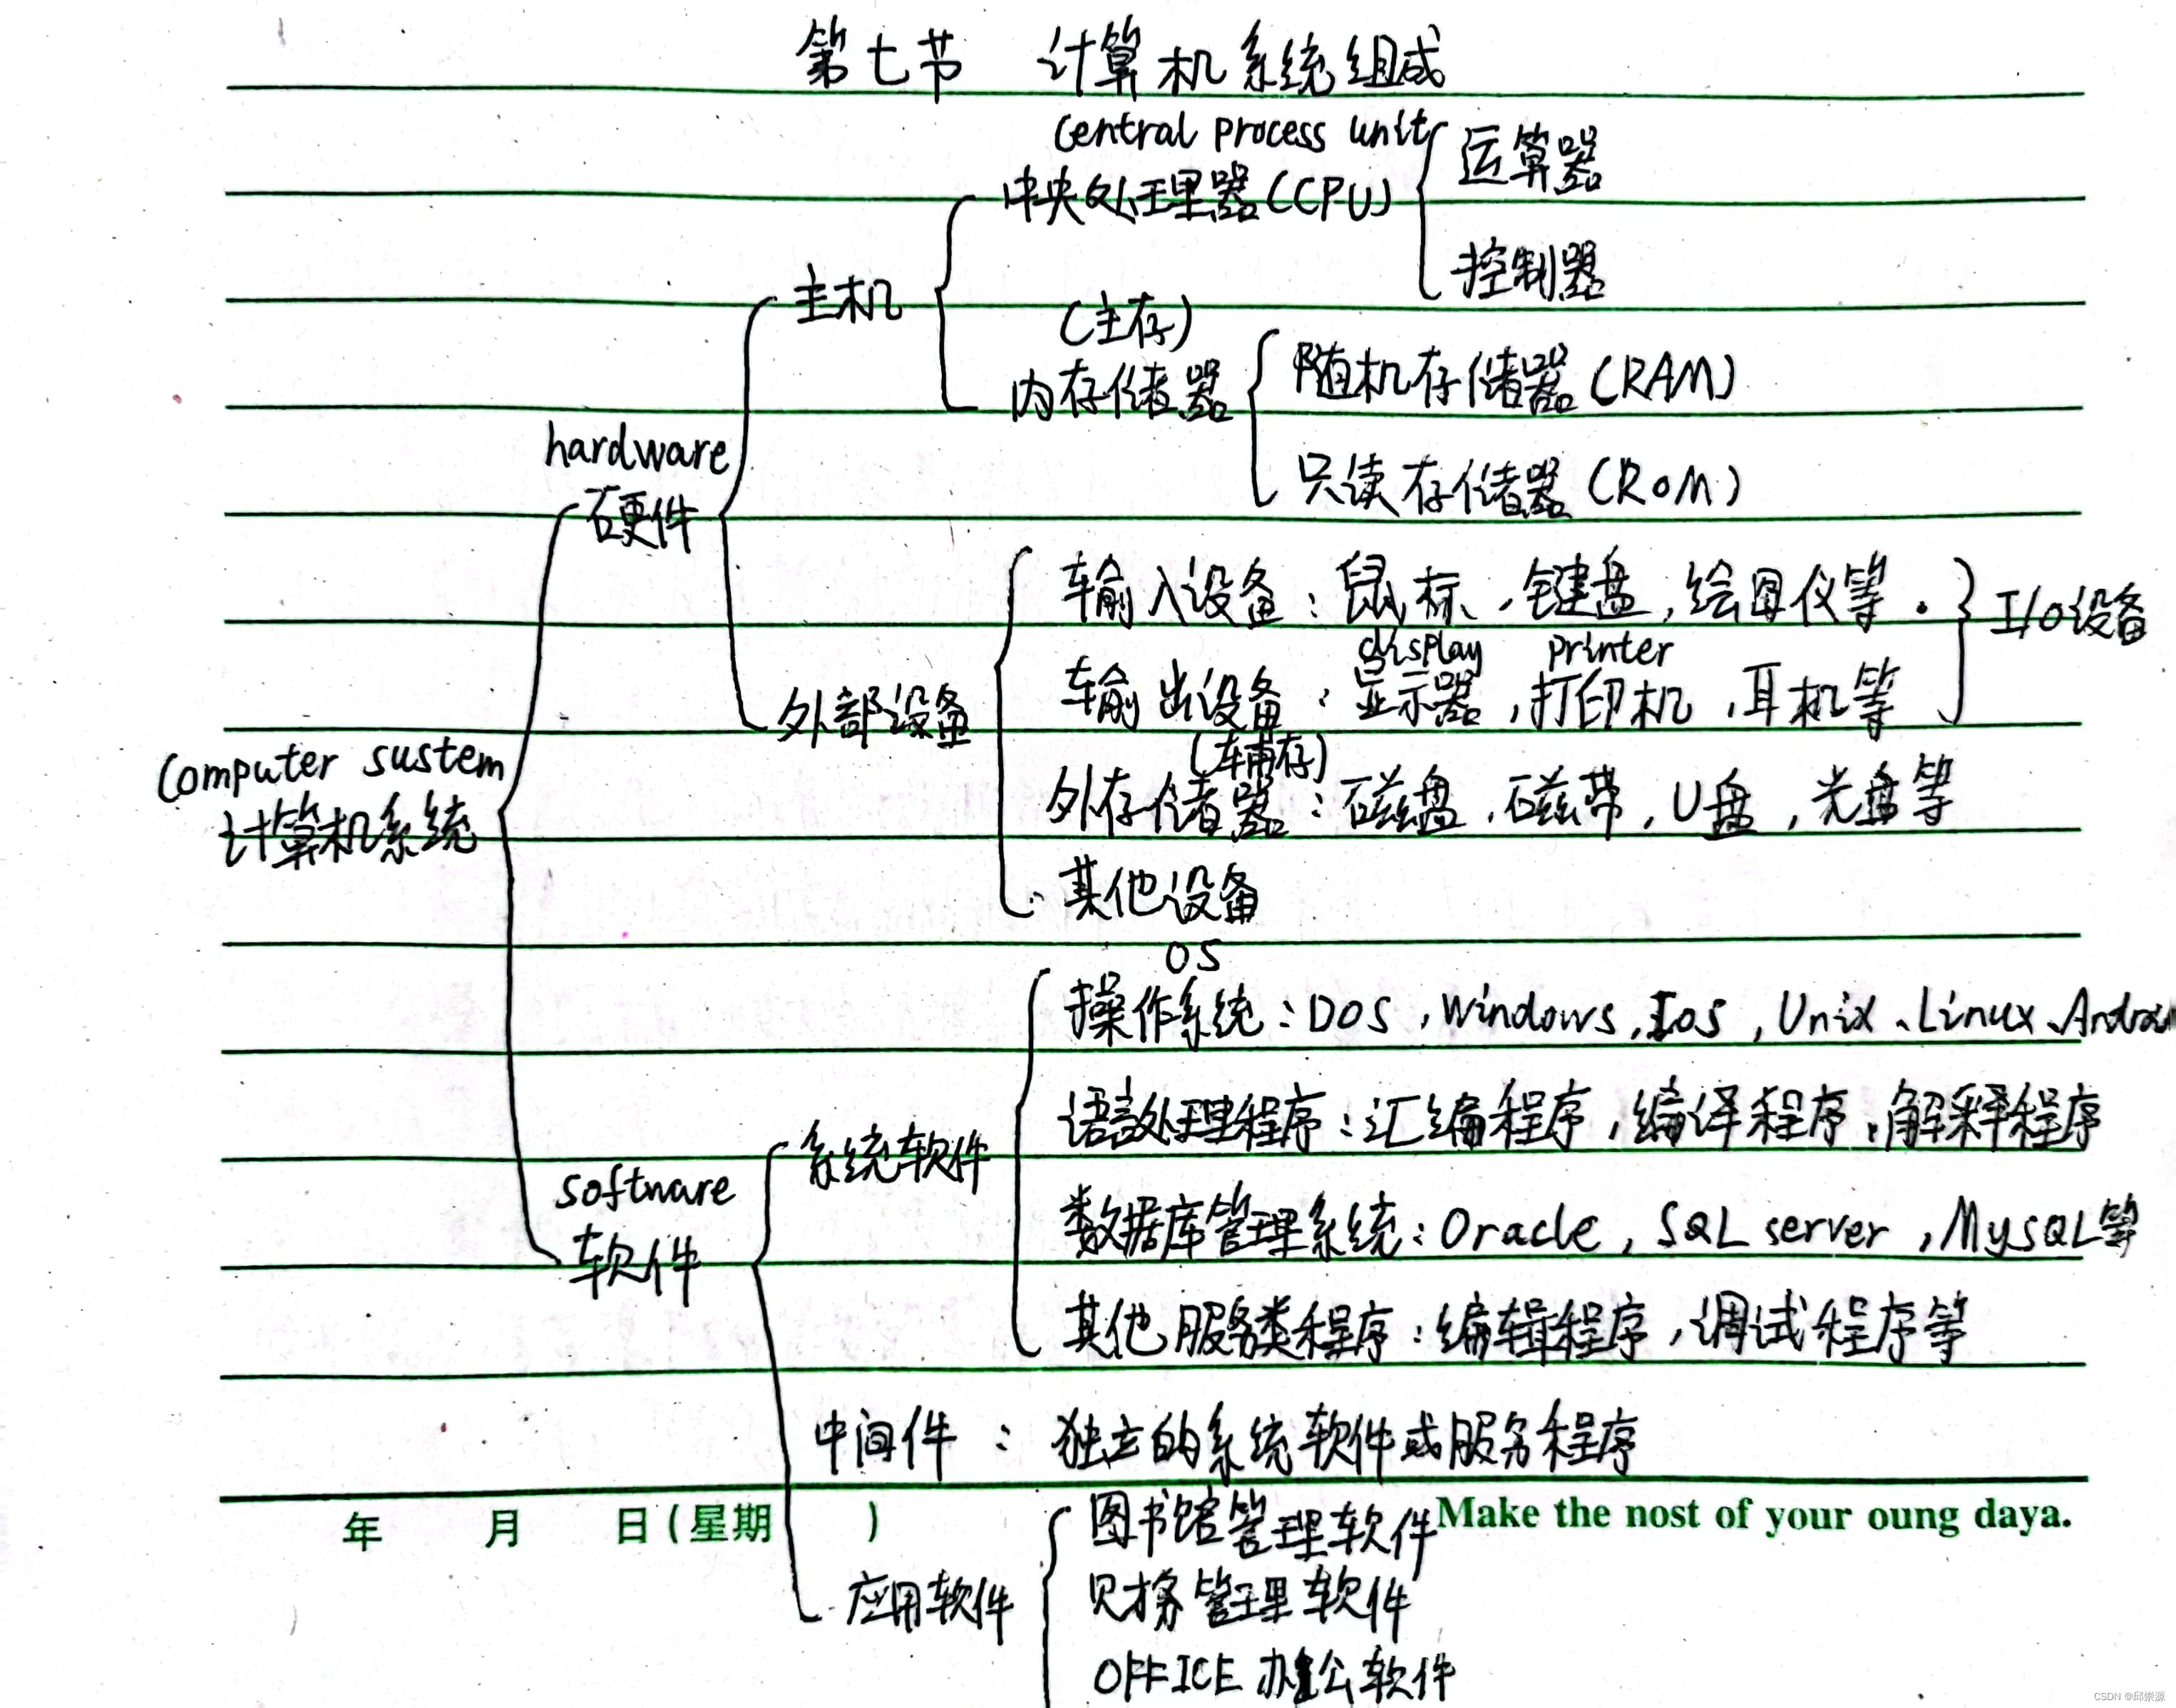 第七节 计算机系统组成
Central process unit
运算器
中央处理器(CPU)
控制器
主机
(主存)
随机存储器(RAM)
内存储器
hardware
只读存储器(ROM)
硬件
输入设备：鼠标，键盘，绘图仪等．
I/O设备
display printer
输出设备：显示器，打印机，耳机等
外部设备
(辅存)
Computer sustem
外存储器：磁盘，磁带，U盘，光盘等
计算机系统
其他设备
OS
操作系统：DOS，Windows，Ios，Unix、Linux、
语言处理程序：汇编程序，编译程序，解释程序
系统软件
software
数据库管理系统：Oracle，SQL server，MysQL等
软件
其他服务类程序：编辑程序，调试程序等
中间件：独立的系统软件或服务程序
年 月 日(星期 )
Make the nost of your oung daya.
图书馆管理软件
财务管理软件
应用软件
OFFICE 办公软件
CSDN @邱崇源